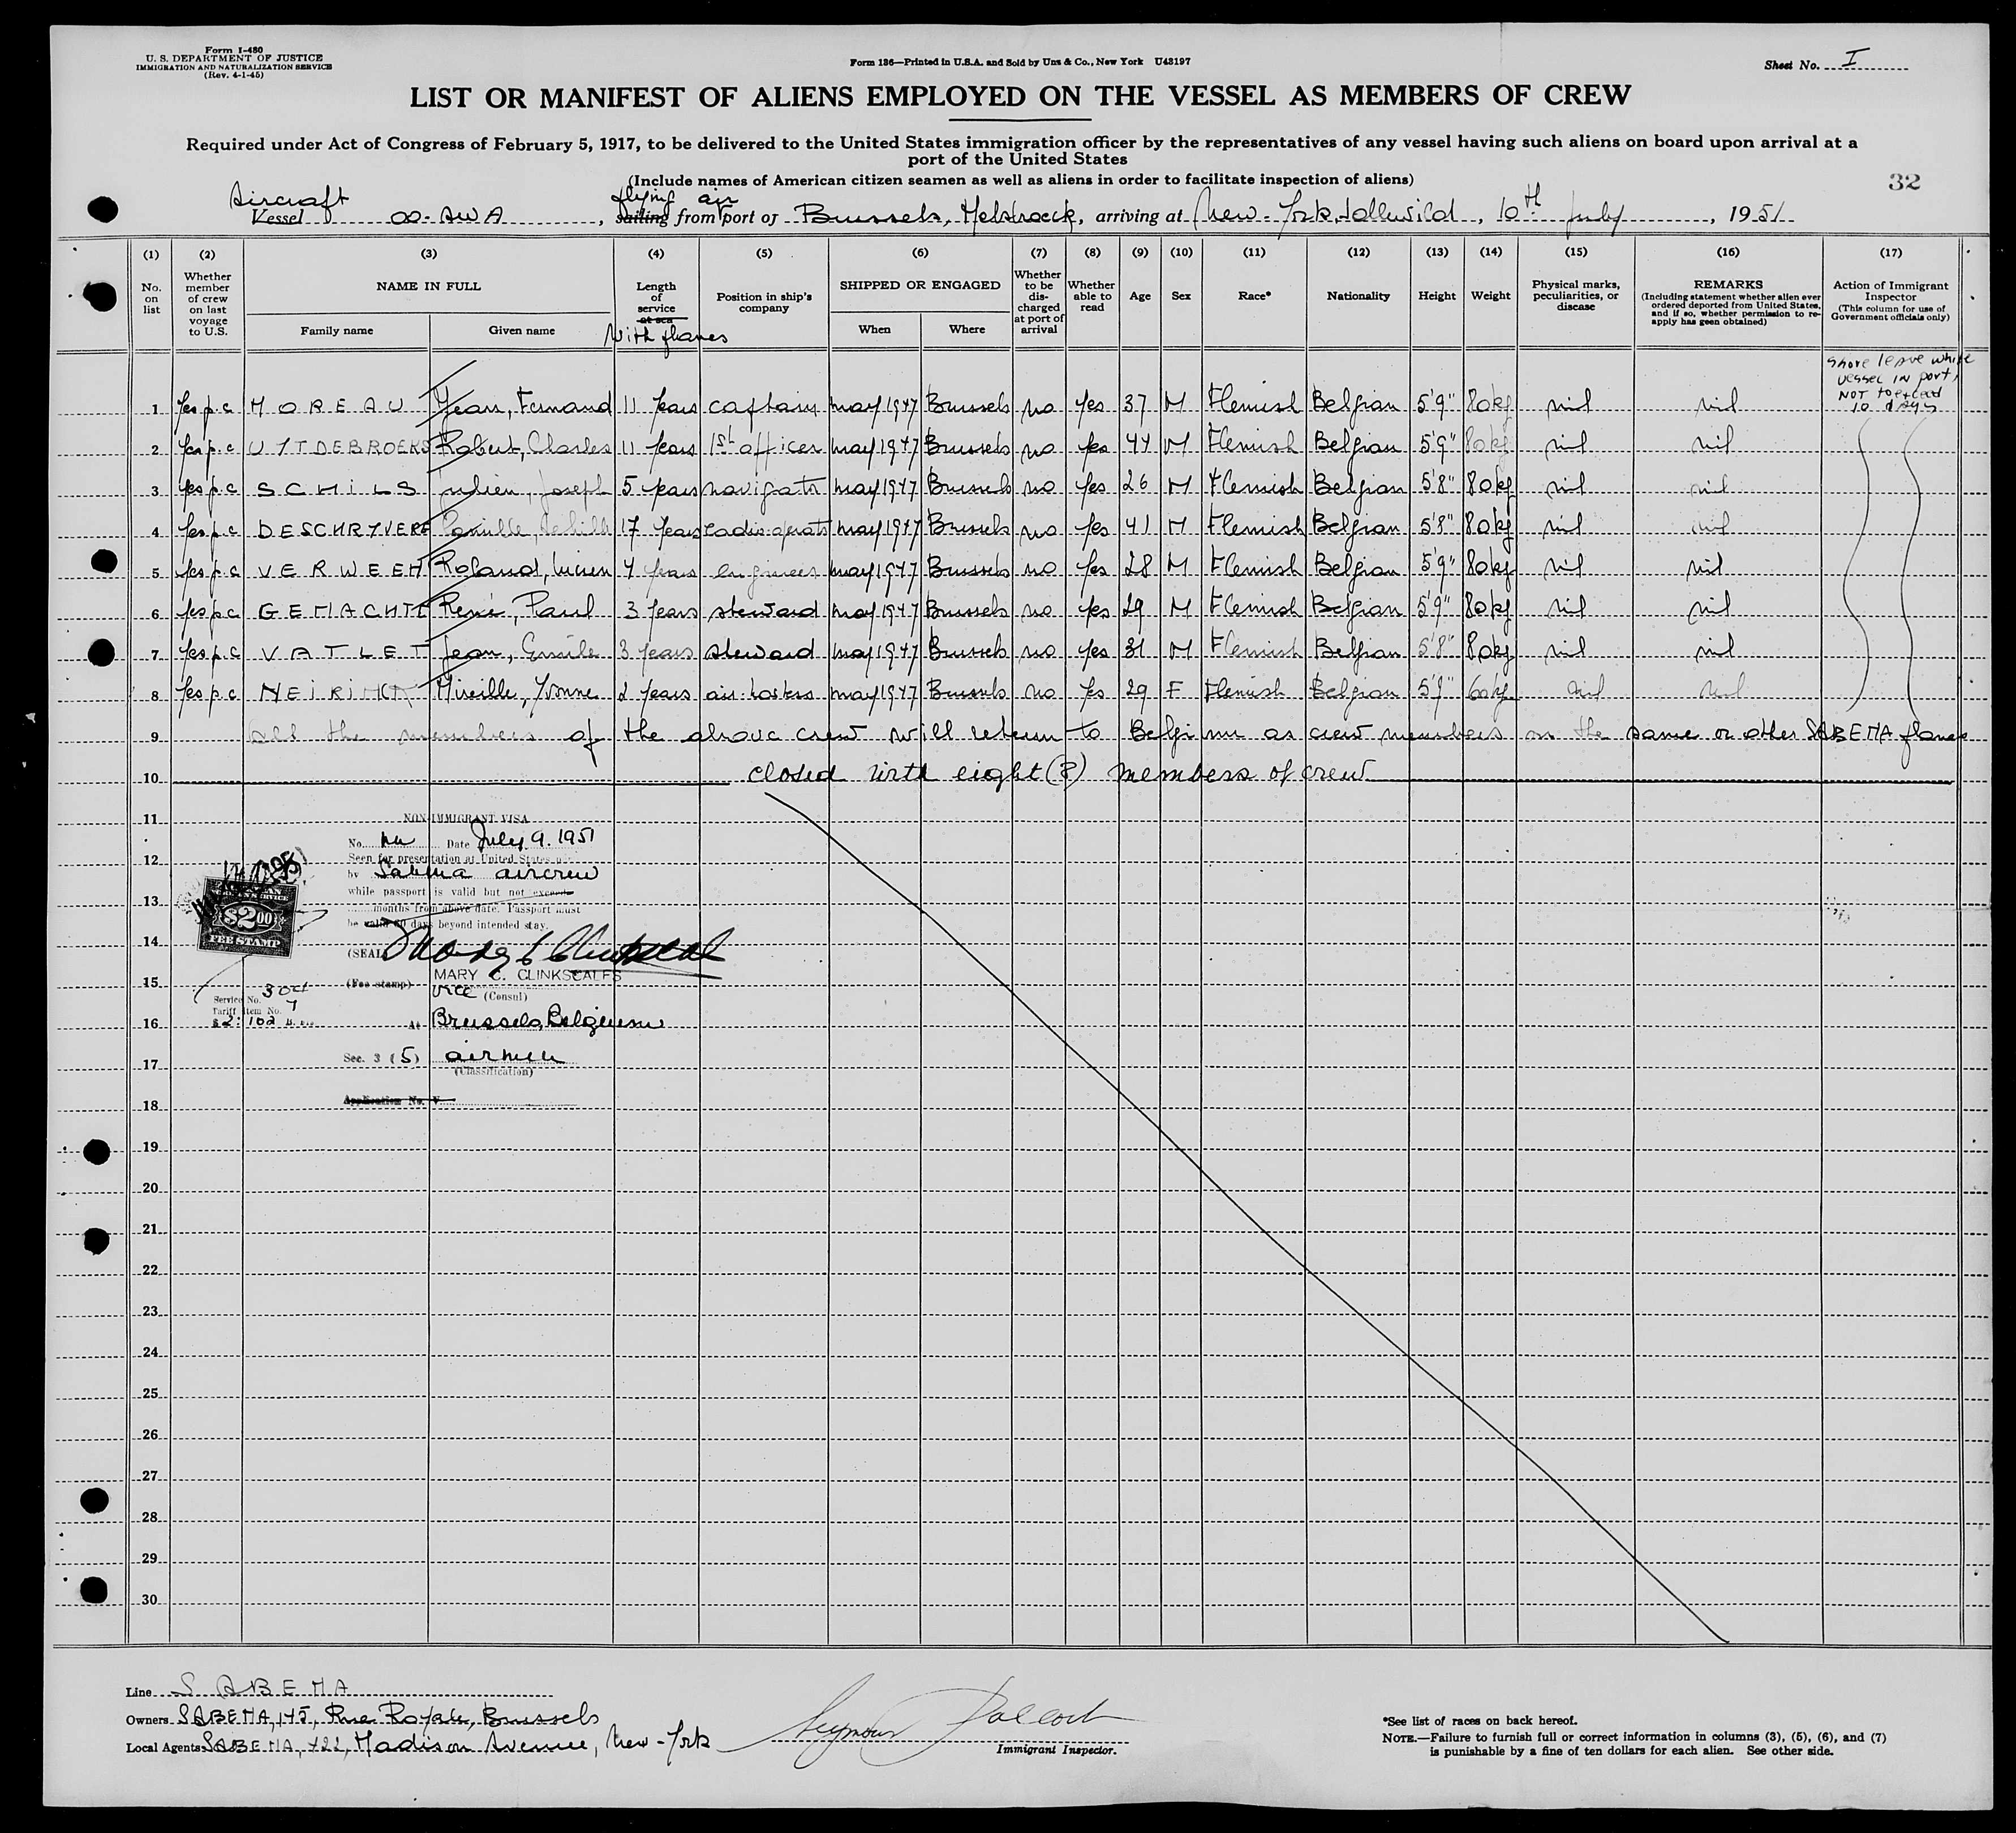 Form I-480
U. S. DEPARTMENT OF JUSTICE
IMMIGRATION AND NATURALIZATION SERVICE
(Rev. 4-1-45)
Form 136—Printed in U.S.A. and Sold by Unz & Co., New York U43197
Sheet No. I
LIST OR MANIFEST OF ALIENS EMPLOYED ON THE VESSEL AS MEMBERS OF CREW
Required under Act of Congress of February 5, 1917, to be delivered to the United States immigration officer by the representatives of any vessel having such aliens on board upon arrival at a
port of the United States
(Include names of American citizen seamen as well as aliens in order to facilitate inspection of aliens)
32
Aircraft flying air
Vessel OO-AWA, sailing from port of Brussels, Melsbroeck, arriving at New-York, Idlewild, 10th July, 1951
(1) (2) (3) (4) (5) (6) (7) (8) (9) (10) (11) (12) (13) (14) (15) (16) (17)
No. on list
Whether member of crew on last voyage to U.S.
NAME IN FULL
Family name
Given name
Length of service at sea
With planes
Position in ship's company
SHIPPED OR ENGAGED
When
Where
Whether to be discharged at port of arrival
Whether able to read
Age
Sex
Race*
Nationality
Height
Weight
Physical marks, peculiarities, or disease
REMARKS
(Including statement whether alien ever ordered deported from United States, and if so, whether permission to re-apply has geen obtained)
Action of Immigrant Inspector
(This column for use of Government officials only)
Shore leave while
vessel in port,
NOT to exceed
10 days
1 Yes p.c MOREAU Jean, Fernand 11 years captain may 1947 Brussels no yes 37 M Flemish Belgian 5'9" 80kg nil nil
2 Yes p.c UYTDEBROEKS Robert, Charles 11 years 1st officer may 1947 Brussels no yes 44 M Flemish Belgian 5'9" 80kg nil nil
3 Yes p.c SCHILS Julien, Joseph 5 years navigator may 1947 Brussels no yes 26 M Flemish Belgian 5'8" 80kg nil nil
4 Yes p.c DESCHRYVERE Camille, Achille 17 years radio operat may 1947 Brussels no yes 41 M Flemish Belgian 5'8" 80kg nil nil
5 Yes p.c VERWEEH Roland, Lucien 4 years engineer may 1947 Brussels no yes 28 M Flemish Belgian 5'9" 80kg nil nil
6 Yes p.c GEMACHTE René, Paul 3 years steward may 1947 Brussels no yes 29 M Flemish Belgian 5'9" 80kg nil nil
7 Yes p.c VATLET Jean, Emile 3 years steward may 1947 Brussels no yes 31 M Flemish Belgian 5'8" 80kg nil nil
8 Yes p.c NEIRINCK Mireille, Yvonne 2 years air-hostess may 1947 Brussels no yes 29 F Flemish Belgian 60kg nil nil
9 All the members of the above crew will return to Belgium as crew members on the same or other SABENA planes
10 closed with eight (8) members of crew
11
12
13
14
15
16
17
18
19
20
21
22
23
24
25
26
27
28
29
30
NON-IMMIGRANT VISA
No. Date July 9. 1951
Seen for presentation at United States
by Sabena aircrew
while passport is valid but not exceed
months from above date. Passport must
be valid 60 days beyond intended stay.
(SEAL) Mary C Clinkscales
MARY C. CLINKSCALES
(Fee stamp) Vice (Consul)
At Brussels, Belgium
Sec. 3 (5) airmen
(Classification)
Application No. V
$2.00
FEE STAMP
Service No. 304
Tariff Item No. 7
$2: 102
Line SABENA
Owners SABENA, 145, Rue Royale, Brussels
Local Agents SABENA, 422, Madison Avenue, New-York
Seymour
Immigrant Inspector.
*See list of races on back hereof.
NOTE.—Failure to furnish full or correct information in columns (3), (5), (6), and (7)
is punishable by a fine of ten dollars for each alien. See other side.